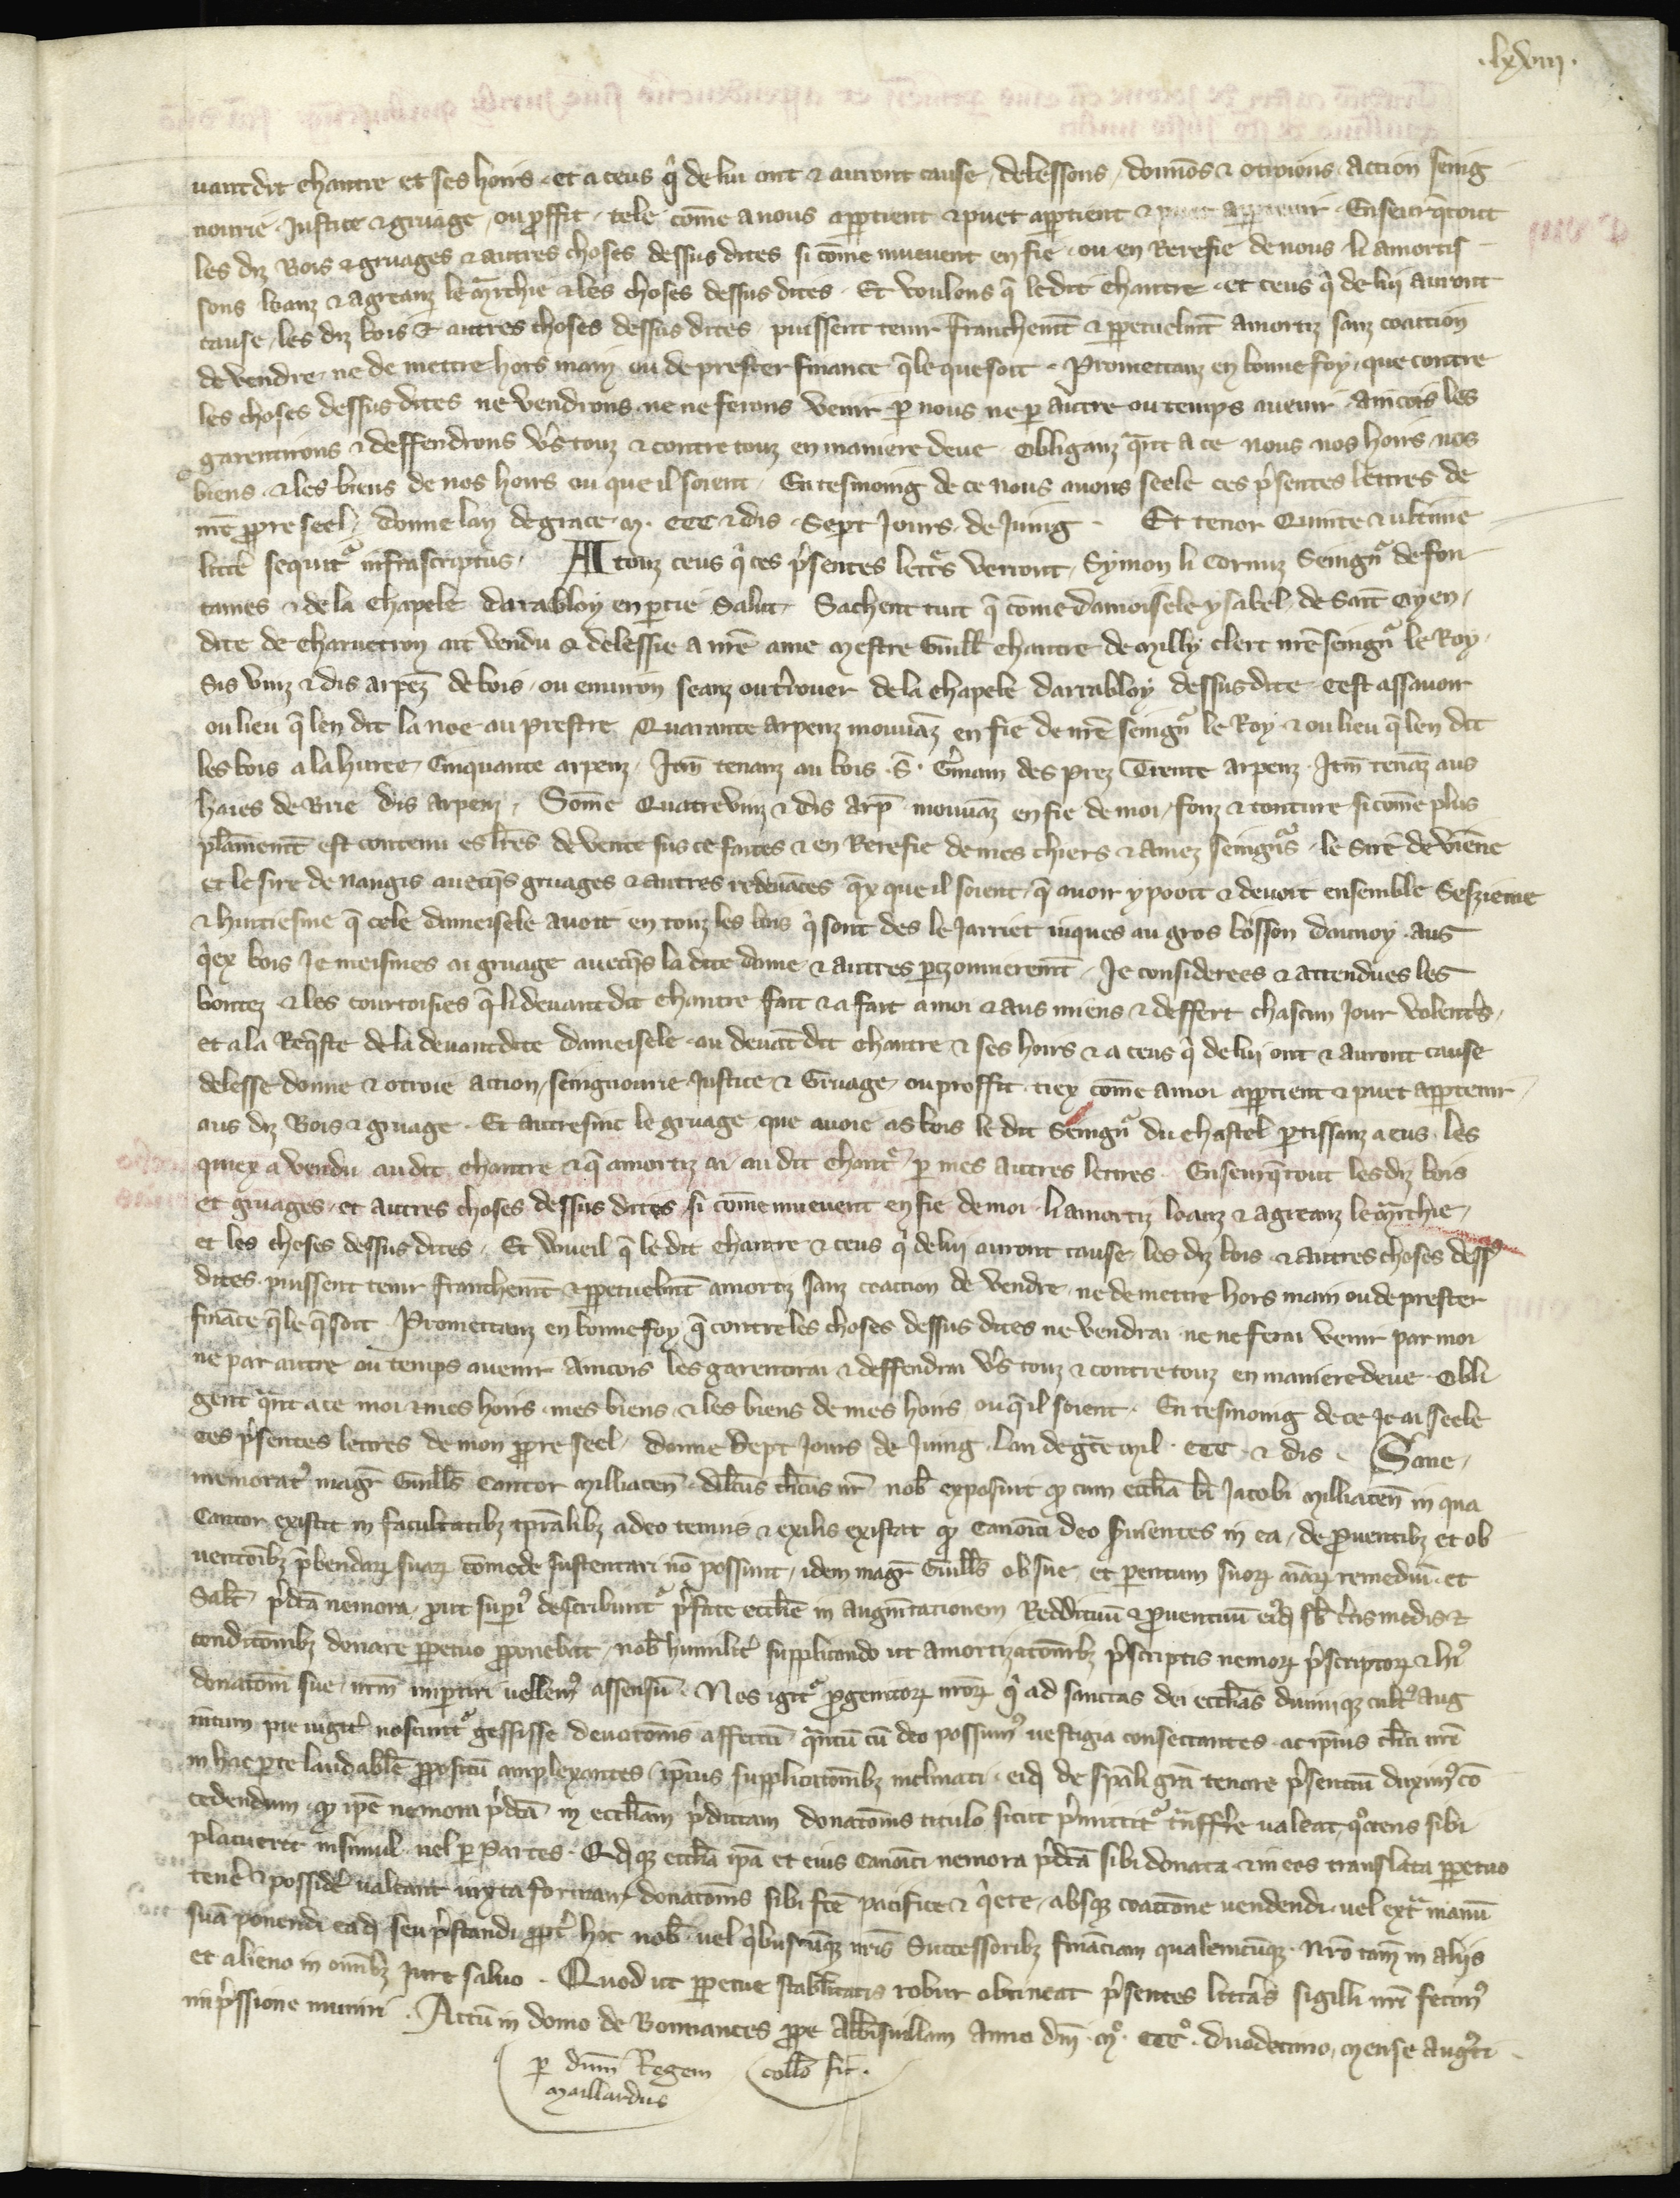 .lxviii.
uant dit chantre et ses hoirs . et a ceus q̄ de lui ont ⁊ auront cause , delessons , donnōs ⁊ otroions action seing
nourie . justice ⁊ gruage , ou proffit . tele com̄e a nous apptient ⁊ puet apptient ⁊ puet appartenir . Enseurq̄tout
les diz Bois ⁊ gruages ⁊ autres choses dessus dites si com̄e muevent en fie . ou en Rerefie de nous . li amortis
sons loanz ⁊ agreanz le marchie ⁊ les choses dessus dites . Et voulons q̄ ledit chantre . et ceus q̄ de lui auront
cause , les diz bois ⁊ autres choses dessus dites , puissent tenir franchem̄t ⁊ ppetuelm̄t amortiz sanz coaction
de vendre . ne de mettre hors main ou de prester finance q̄le que soit . Promettanz en bonne foy , que contre
les choses dessus dites ne vendrons . ne ne ferons venir p nous ne p autre ou temps avenir . ancois les
garentirons ⁊ deffendrons v̄s touz ⁊ contre touz en maniere deue . Obliganz q̄nt a ce nous nos hoirs , nos
biens . ⁊ les biens de nos hoirs ou que il soient . En tesmoing de ce nous avons seele ces p̄sentes lettres de
nr̄e ppre seel , donne lan de grace . m . ccc ⁊ dis . Sept jours , de juing . Et tenor Quinte ⁊ ultime
litt̄e sequit᷑ infrascriptus . A touz ceus q̄ ces p̄sentes lett̄s verront , Symon li Cornuz Seingn᷑ de fon
taines ⁊ de la chapele darabloy en ptie Salut . Sachent tuit q̄ com̄e damoisele ysabel de Saīt
dite de ait vendu ⁊ delessie a nr̄e ame mestre Guill̄ chantre de Milly clerc nr̄e seingn᷑ le Roy .
Sis vinz ⁊ dis arpez̄ de bois , ou environ seanz ou t̄rouer de la chapele darrabloy dessus dite . cest assavoir
ou lieu q̄ len dit la noe au prestre Quarante arpenz mouuāz en fie de nr̄e seingn᷑ le Roy . ⁊ ou lieu q̄ len dit
les bois a la huree , Cinquante arpenz . Jtm̄ tenanz au bois . S̄ . G̃main des prez Trente arpenz . Jtm̄ tenāz aus
haies de Brie dis arpenz , Som̄e Quatrevinz ⁊ dis arp̄ mouuāz en fie de moi , fonz ⁊ tonture si com̄e plus
plām̄ent est contenu es lr̄es de vente sus ce faites ⁊ en Rerefie de mes chiers ⁊ amez seingn᷑s . le Sire de vien̄e
et le sire de nangis auecq̄s gruages ⁊ autres redevāces q̄x que il soient , q̄ avoir y pooit ⁊ devoit ensemble Seszieme
⁊ huitiesme q̄ cele dameisele avoit en touz les bois q̄ sont des le jarriet iuques au gros bosson daunoy . aus
q̄ex bois Je meismes ai gruage auecq̄s la dite dame ⁊ autres ptzonnierem̄t . Je considerees ⁊ attendues les
bontez ⁊ les courtoisies q̄ li devant dit chantre fait ⁊ a fait a moi ⁊ aus miens ⁊ deffert chascun jour volent̄s ,
et a la Req̄ste de la devant dite dameisele . au devāt dit chantre ⁊ ses hoirs ⁊ a ceus q̄ de lui ont ⁊ auront cause
delesse donne ⁊ otroie action , seingnourie justice ⁊ Gruage , ou proffit . tiex com̄e a moi apptient ⁊ puet apptenir ,
aus diz Bois ⁊ gruage . Et autresint le gruage , que avoie as bois le dit Seingn᷑ du chastel ptissanz a eus . les
quiex a vendu au dit chantre ⁊ q̄ amortiz ai au dit chant̄ , p mes autres lettres . Enseurq̄tout les diz bois
et gruages , et autres choses dessus dites si com̄e muevent en fie de moi . li amortiz loanz ⁊ agreanz le marchie ,
et les choses dessus dites , Et vueil q̄ le dit chantre ⁊ ceus q̄ de lui auront cause les diz bois . ⁊ autres choses dess⁹
dites . puissent tenir franchem̄t ⁊ ppetuelm̄t amortiz sanz coaction de vendre , ne de mettre hors main ou de prester
fināce q̄le q̄ soit . Promettanz en bonne foy q̄ contre les choses dessus dites ne vendrai ne ne ferai venir par moi
ne par autre ou temps avenir Ancois les garentirai ⁊ deffendrai v̄s touz ⁊ contre touz en maniere deue . Obli
gent q̄nt a ce moi ⁊ mes hoirs . mes biens , ⁊ les biens de mes hoirs ou q̄ il soient . En tesmoing de ce Je ai seele
ces p̄sentes lettres de mon ppre seel , donne Sept jours de juing . Lan de gr̄ce mil . ccc . ⁊ dis . Sane ,
memorat᷑ magr̄ Guill̄s Cantor Milliacen̄ . dilc̄us cl̄icus nr̄ nob̄ exposuit q̄ cum eccl̄ia b̄i Jacobi Milliacen̄ in qua
Cantor existit in facultatibȝ tp̄ralibȝ adeo tenuis ⁊ exilis existat q̄ Canoīci deo s̄vientes in ea , de pventibȝ et ob
uentōibȝ p̄bendaꝝ suaꝝ com̄ode sustentari nō possunt , idem magr̄ Guill̄s ob sue et parentum suoꝝ aīaꝝ remediū . et
Salt̄ p̄dc̄a nemora , put supi᷑ describunt᷑ p̄fate eccl̄ie in augm̄tationem Reddituū ⁊ pventuū eiq̄ sb̄ c̄tis modis ⁊
conditōibȝ donare ppetuo pponebat , nob̄ humilit̄ supplicando ut amortizatōibȝ p̄scriptis nemoꝝ p̄scriptoꝝ ⁊ hi᷑
donatōni sue , nr̄m impartiri vellem᷑ assensū . Nos igit᷑ pgenitoꝝ nr̄oꝝ q̄ ad sanctas dei eccl̄ias diuiniqȝ cult᷑ aug
mtum pie uigit̄ noscunt᷑ gessisse deuotōnis affectū q̄ntū cū deo possum᷑ uestigia consectantes . ac ip̄ius cl̄ici nr̄i
in hac pte laudabile ppositū amplexantes , ip̄ius supplicatōibȝ inclinati . eiq̄ de sp̄ali gr̄a tenore p̄sentiū duxim᷑ cō
cedendum , q̄ ip̄e nemora p̄dc̄a in eccl̄iam p̄dictam donatōnis titulo sicut p̄mittit᷑ t̄nsff̄re ualeat , q̄ciens sibi
placuerit insimul . uel p partes . Qdqȝ eccl̄ia ip̄a et eius Canoīci nemora p̄dc̄a sibi donata ⁊ in eos translata ppetuo
ten̄e ⁊ possid̄e ualeant iuxta formam donatōnis sibi fc̄e pacifice ⁊ q̄ete , absqȝ coactione uendendi . uel ext̄ manū
suā ponendi eaq̄ seu p̄standi ppt̄ hoc nob̄ . uel q̄buscūqȝ nr̄is Successoribȝ financiam qualemcūqȝ . Nr̄o tam̄ in aliis
et alieno in om̄ibȝ Jure saluo . Quod ut ppetue stabilitatis robur obtineat p̄sentes litt̄as sigilli nr̄i fecim᷑
imp̄ssione muniri . Actū in domo de Bonnances ppe anno dn̄i . m᷑ . ccc᷑ . duodecimo , mense augusti .
p dn̄m Regem
Maillardus
coll̄o fit .